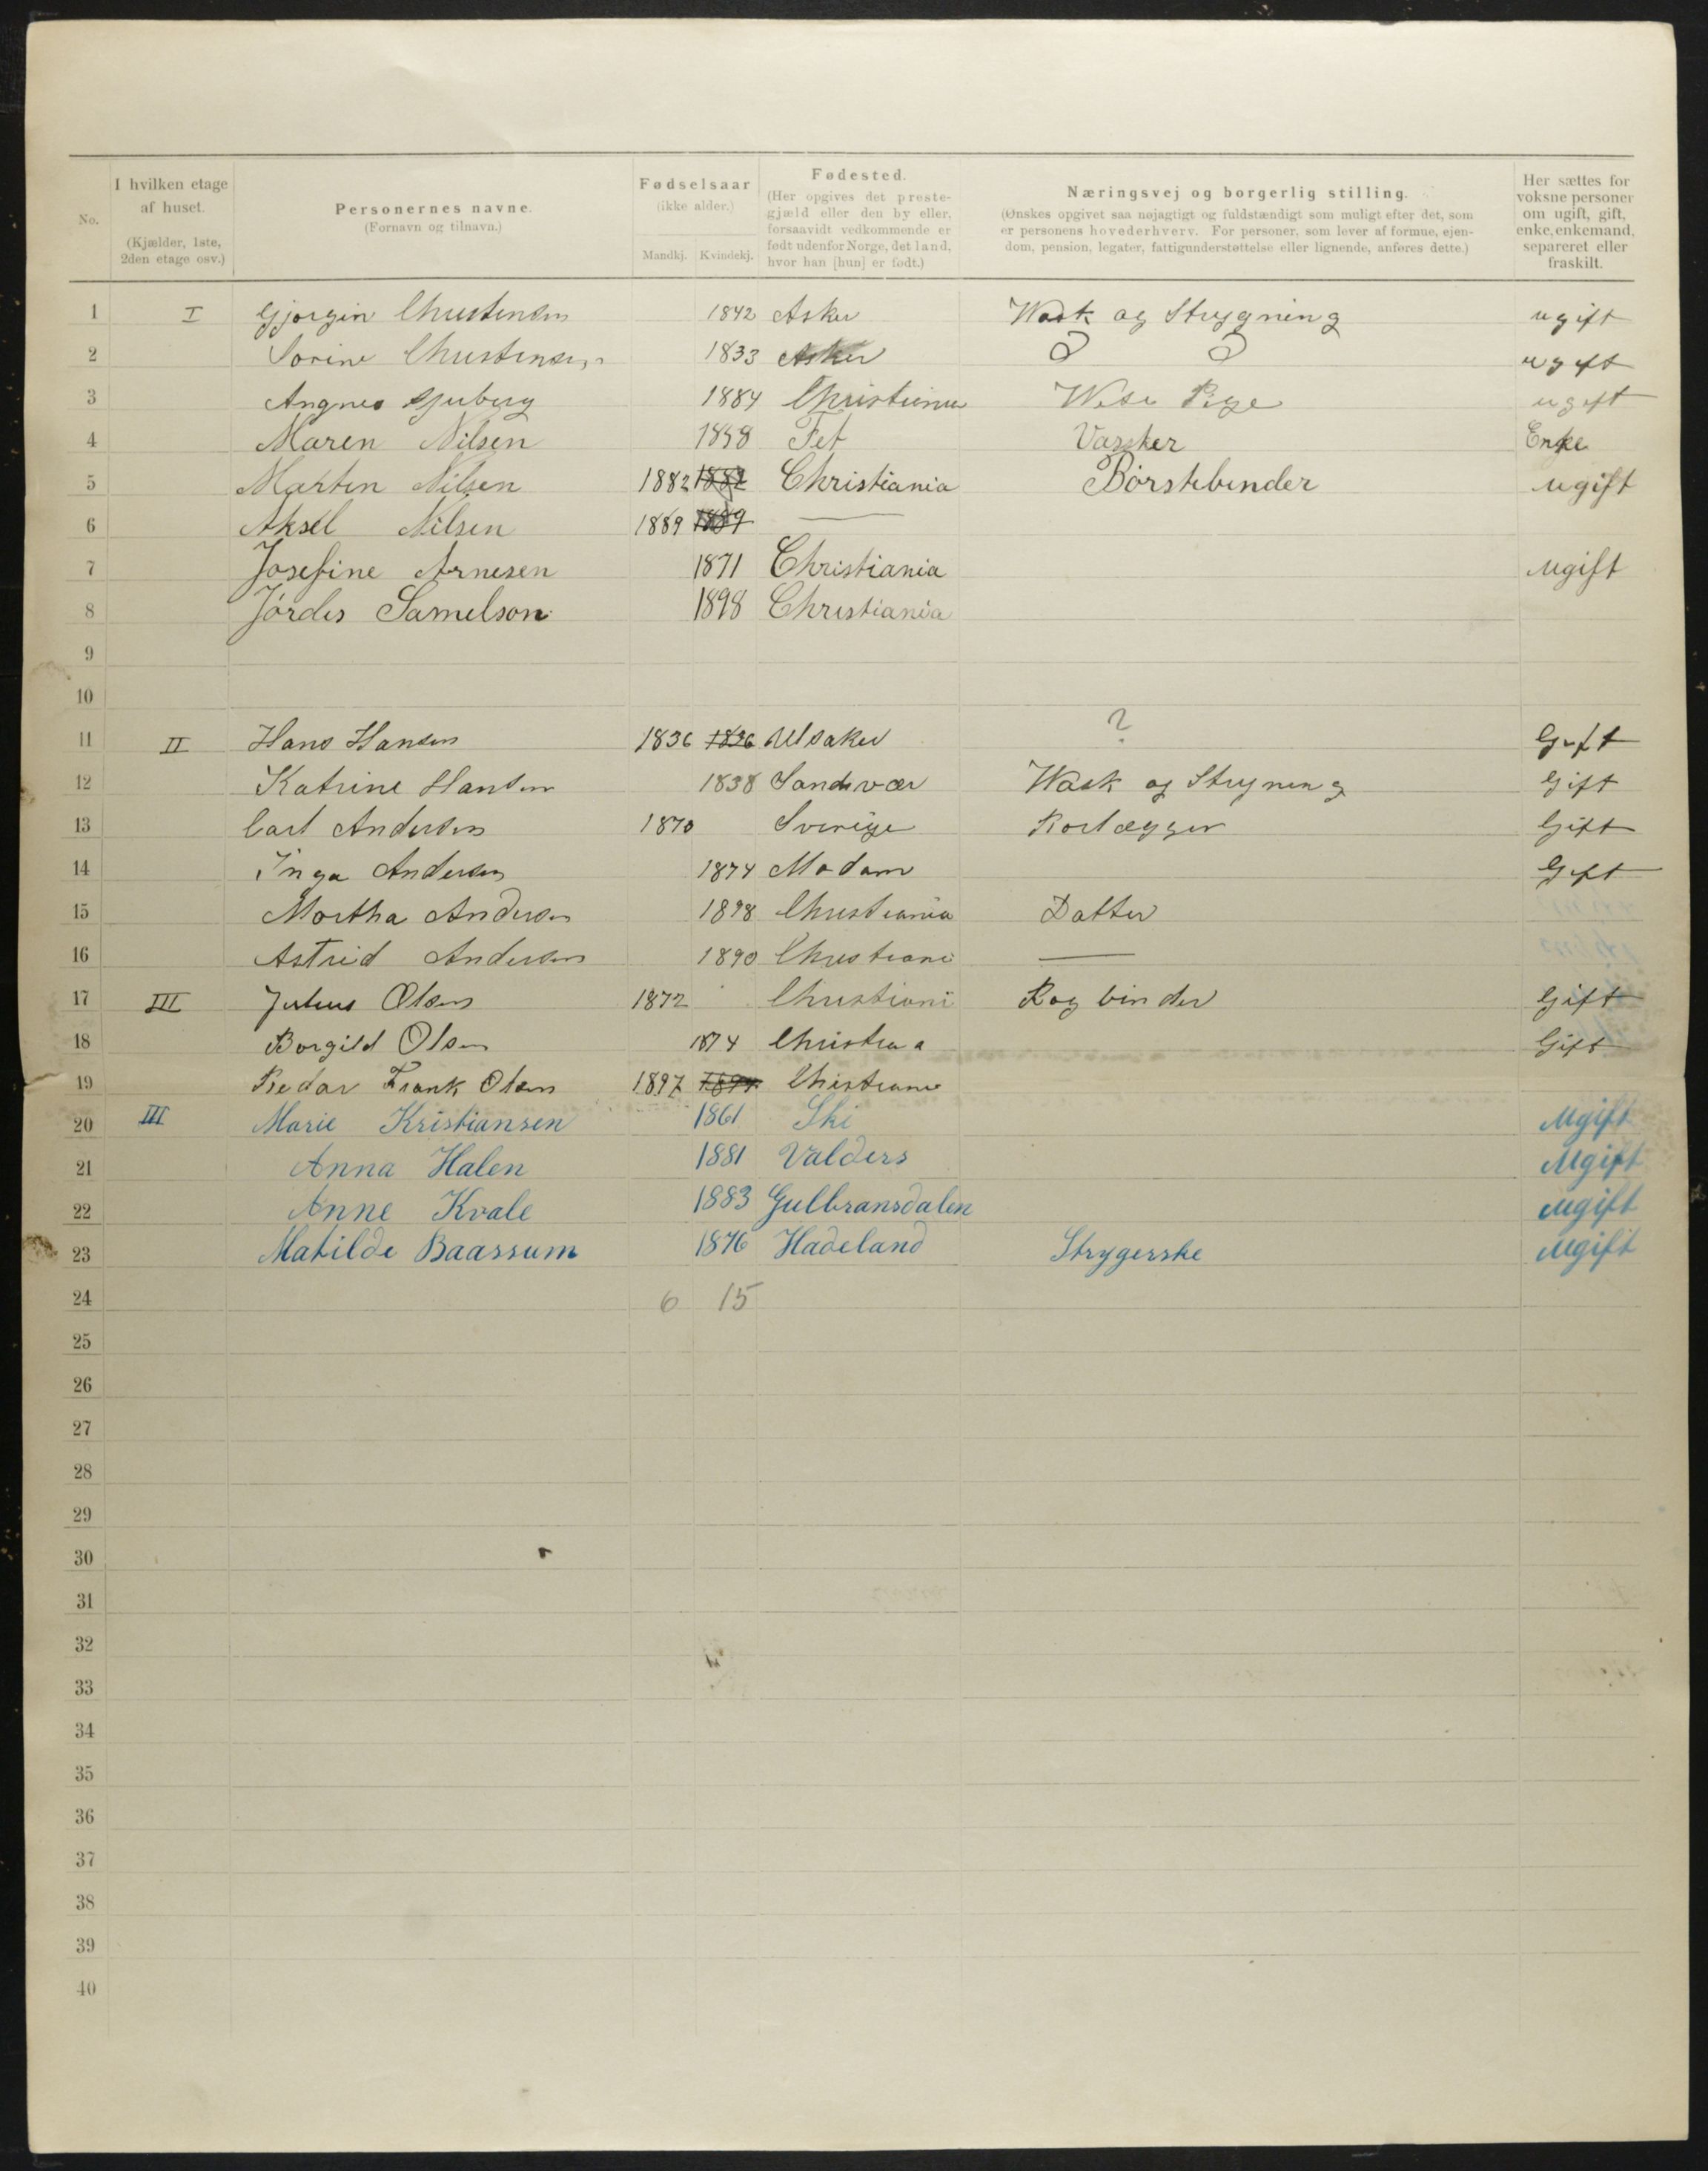 No.
I hvilken etage af huset.
(Kjælder, 1ste, 2den etage osv.)
Personernes navne.
(Fornavn og tilnavn.)
Fødselsaar
(ikke alder.)
Mandkj. Kvindekj.
Fødested.
(Her opgives det prestegjæld eller den by eller, forsaavidt vedkommende er født udenfor Norge, det land, hvor han [hun] er født.)
Næringsvej og borgerlig stilling.
(Ønskes opgivet saa nøjagtigt og fuldstændigt som muligt efter det, som er personens hovederhverv. For personer, som lever af formue, ejendom, pension, legater, fattigunderstøttelse eller lignende, anføres dette.)
Her sættes for voksne personer om ugift, gift, enke, enkemand, separeret eller fraskilt.
1 I Gjørgin Christensen 1842 Asker Wask og Strygning ugift
2 Sorine Christensen 1833 Asker ugift
3 Angnes 1884 Christiania Pige ugift
4 Maren Nilsen 1848 Fet Vassker Enke
5 Martin Nilsen 1882 1882 Christiania Börstebinder ugift
6 Aksel Nilsen 1889 1889 —
7 Josefine Arnesen 1871 Christiania ugift
8 Jórdis Samelson 1898 Christiania
9
10
11 II Hans Hansen 1836 1836 Ulsaker ? Gift
12 Katrine Hansen 1838 Sandsvær Wask og Strygning Gift
13 Carl Andersen 1870 Sverige Gift
14 Inga Andersen 1874 Modum Gift
15 Martha Andersen 1898 Christiania Datter
16 Astrid Andersen 1890 Christiani —
17 III Julius Olsen 1872 Christiani Bogbinder Gift
18 Borgild Olsen 1874 Christiana Gift
19 Redar Frank Olsen 1897 1897 Christiania
20 III Marie Kristiansen 1861 Ski Ugift
21 Anna Halen 1881 Valders Ugift
22 Anne Kvale 1883 Gulbransdalen ugift
23 Matilde Baassum 1876 Hadeland Strygerske Ugift
24 6 15
25
26
27
28
29
30
31
32
33
34
35
36
37
38
39
40